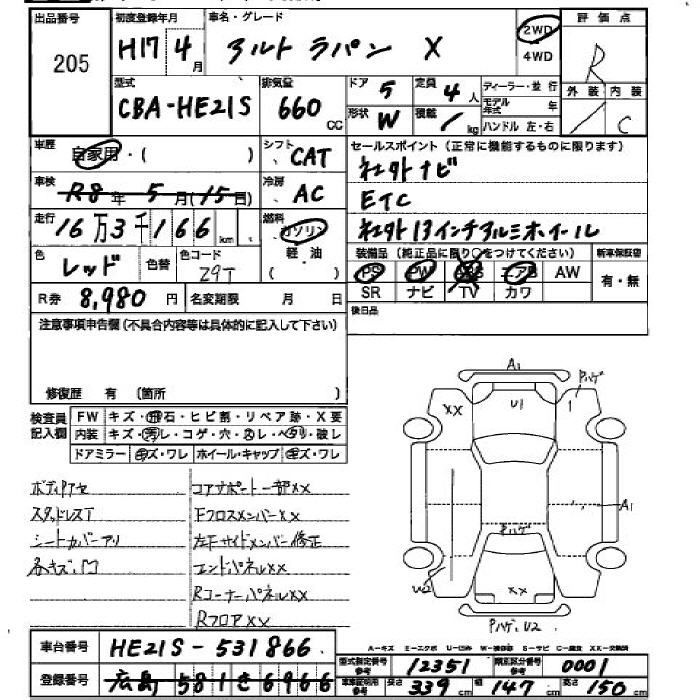 出品番号 205
初度登録年月 H17年 4月
車名・グレード アルト ラパン X
2WD 4WD
評価点 R
外装 / 内装 C
型式 CBA-HE21S
排気量 660 CC
ドア 5 定員 4人
形状 W 積載 / kg
ディーラー・並行
モデル年式 年
ハンドル 左・右
車歴 自家用・( )
シフト CAT
セールスポイント(正常に機能するものに限ります)
社外ナビ
ETC
社外13インチアルミホイール
車検 R8年 5月(15日)
冷房 AC
走行 16万3千166 km
燃料 ガソリン 軽油 ( )
色 レッド 色替 色コード Z9T
装備品(純正品に限り○をつけてください)
PS PW ABS エアB AW
SR ナビ TV カワ
新車保証書 有・無
R券 8,980円 名変期限 月 日
後日品
注意事項申告欄(不具合内容等は具体的に記入して下さい)
修復歴 有 (箇所 )
検査員記入欄
FW キズ・飛石・ヒビ割・リペア跡・X要
内装 キズ・汚レ・コゲ・穴・スレ・ヘタリ・破レ
ドアミラー キズ・ワレ ホイール・キャップ キズ・ワレ
ボディアセ
スタッドレスT
シートカバーアリ
各キズ、凹
コアサポート一部XX
FクロスメンバーXX
左Fサイドメンバー修正
エンドパネルXX
RコーナーパネルXX
RフロアXX
A1
Pハゲ
XX
U1
1
A1
Pハゲ
U2
XX
Pハゲ、U2
A-キズ E-エクボ U-凹み W-補修跡 S-サビ C-腐食 XX-交換済
車台番号 HE21S-531866
登録番号 広島 581 き 6966
型式指定番号 12351 類別区分番号 0001
車庫証明用参考 長さ 339cm 幅 147cm 高さ 150cm